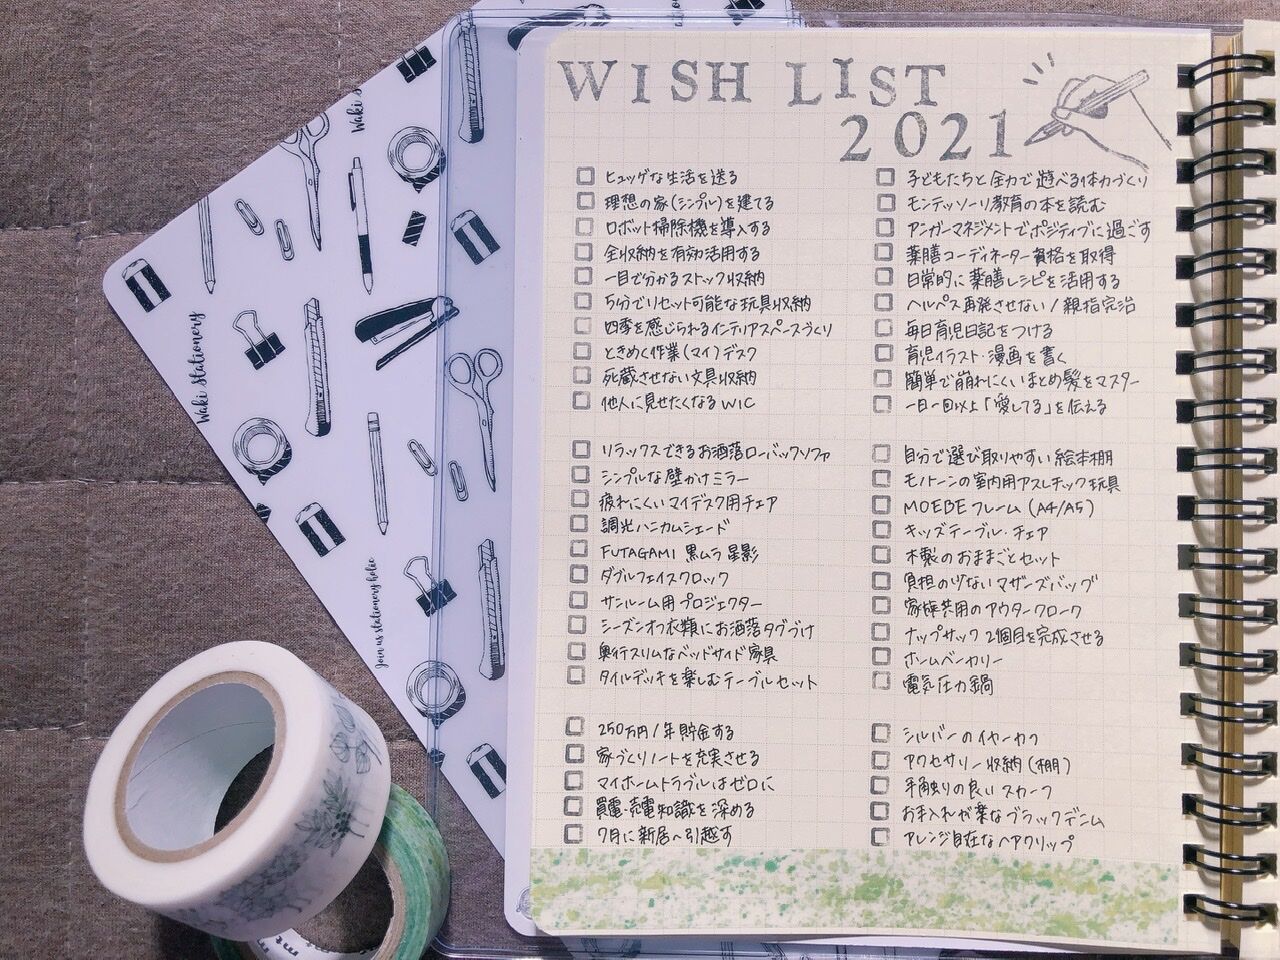 WISH LIST
2021
ヒュッゲな生活を送る
理想の家(シンプル)を建てる
ロボット掃除機を導入する
全収納を有効活用する
一目で分かるストック収納
5分でリセット可能な玩具収納
四季を感じられるインテリアスペースづくり
ときめく作業(マイ)デスク
死蔵させない文具収納
他人に見せたくなるWIC
リラックスできるお洒落ローバックソファ
シンプルな壁かけミラー
疲れにくいマイデスク用チェア
調光ハニカムシェード
FUTAGAMI 黒ムラ 星影
ダブルフェイスクロック
サンルーム用プロジェクター
シーズンオフ衣類にお洒落タグづけ
奥行スリムなベッドサイド家具
タイルデッキを楽しむテーブルセット
250万円/年貯金する
家づくりノートを充実させる
マイホームトラブルはゼロに
買電・売電知識を深める
7月に新居へ引越す
子どもたちと全力で遊べる体力づくり
モンテッソーリ教育の本を読む
アンガーマネジメントでポジティブに過ごす
薬膳コーディネーター資格を取得
日常的に薬膳レシピを活用する
ヘルペス再発させない/親指完治
毎日育児日記をつける
育児イラスト・漫画を書く
簡単で崩れにくいまとめ髪をマスター
一日一回以上「愛してる」を伝える
自分で選び取りやすい絵本棚
モノトーンの室内用アスレチック玩具
MOEBEフレーム(A4/A5)
キッズテーブル・チェア
木製のおままごとセット
負担の少ないマザーズバッグ
家族共用のアウタークローク
ナップサック2個目を完成させる
ホームベーカリー
電気圧力鍋
シルバーのイヤーカフ
アクセサリー収納(棚)
手触りの良いスカーフ
お手入れが楽なブラックデニム
アレンジ自在なヘアクリップ
Waki Stationery
Join us stationery holic
mt